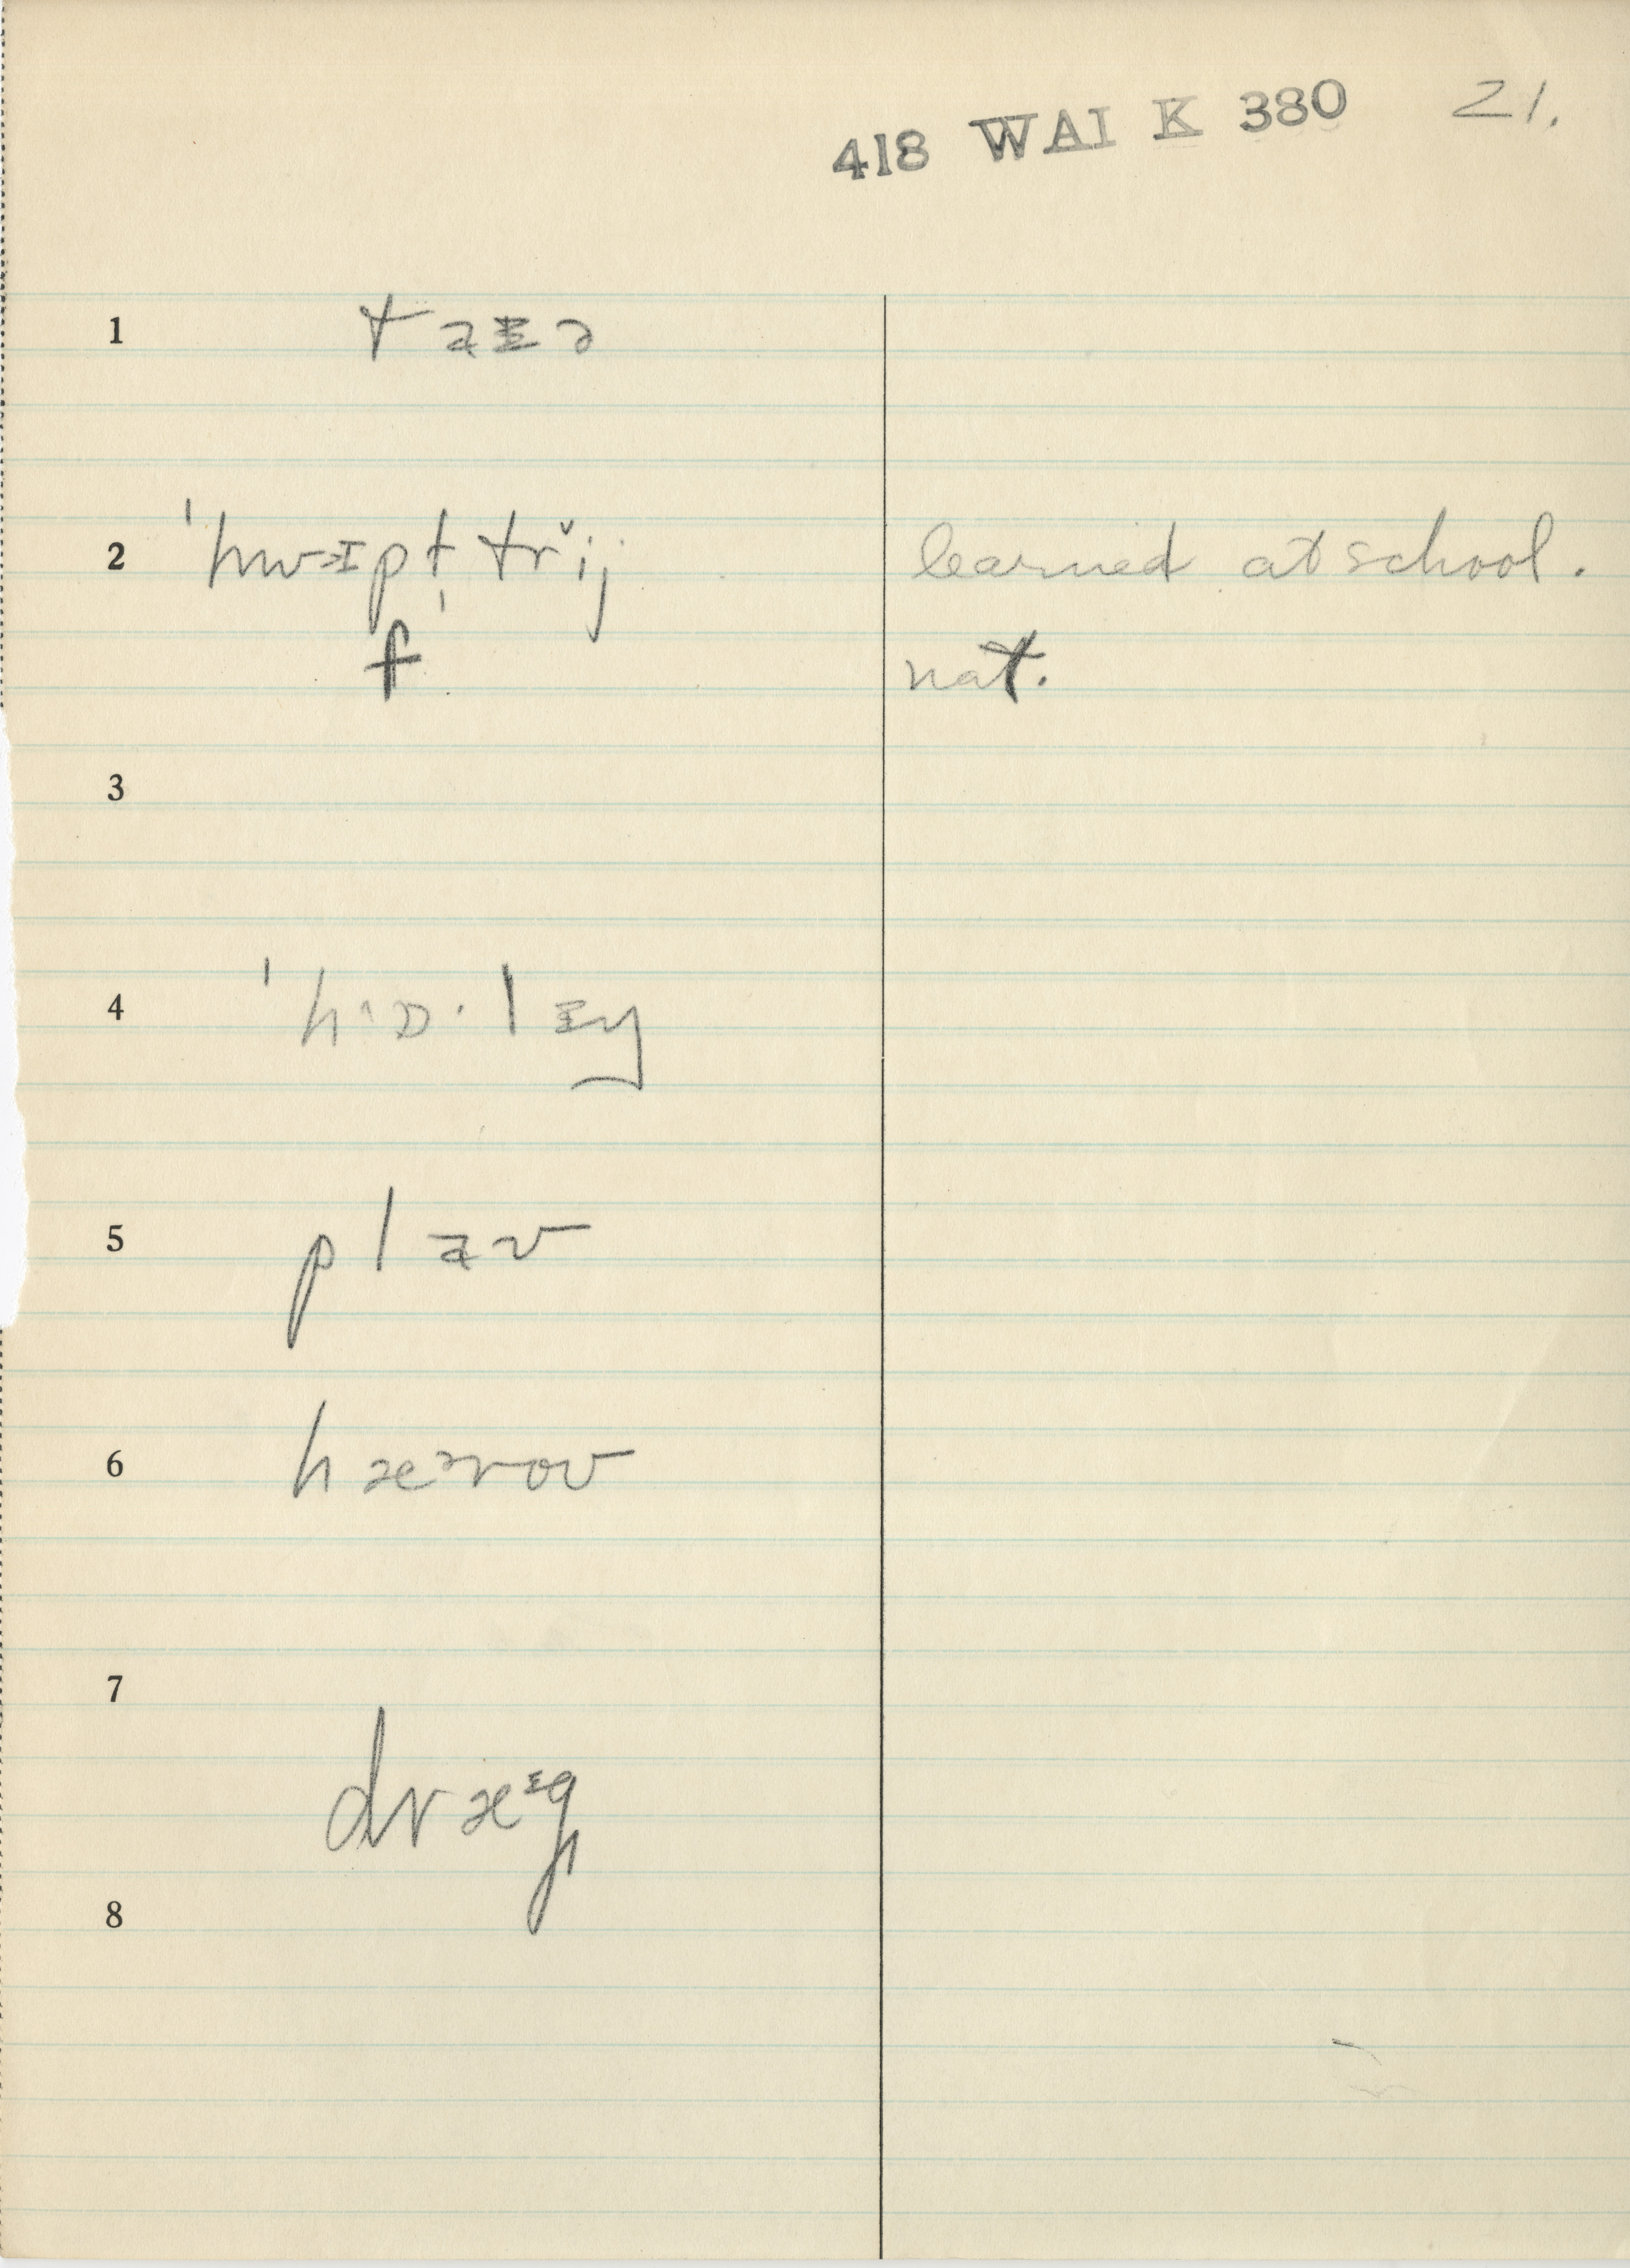 418 WAI K 380 21.
1 taɪə
2 ˈhwɪpt̩ trˇij learned at school.
f nat.
3
4
5 plaʊ
6 hæᵊroʊ
7
dræᶦg
8